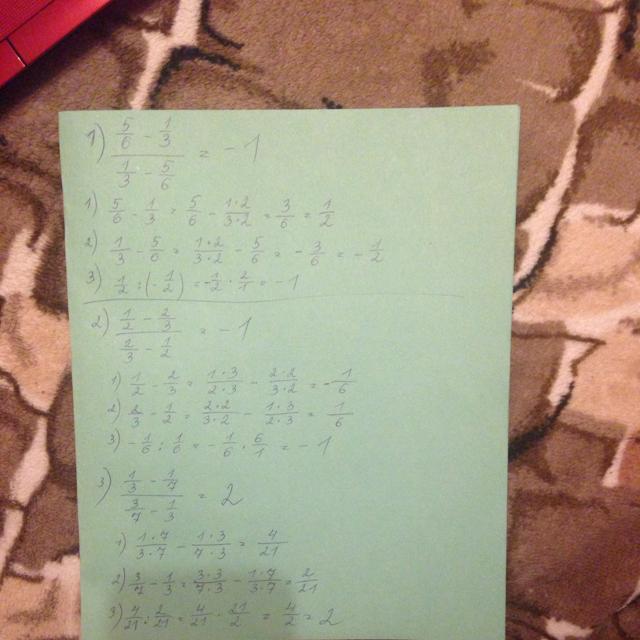 1) (5/6 - 1/3)/(1/3 - 5/6) = -1
1) 5/6 - 1/3 = 5/6 - 1·2/3·2 = 3/6 = 1/2
2) 1/3 - 5/6 = 1·2/3·2 - 5/6 = -3/6 = -1/2
3) 1/2 : (-1/2) = -1/2 · 2/1 = -1
2) (1/2 - 2/3)/(2/3 - 1/2) = -1
1) 1/2 - 2/3 = 1·3/2·3 - 2·2/3·2 = -1/6
2) 2/3 - 1/2 = 2·2/3·2 - 1·3/2·3 = 1/6
3) -1/6 : 1/6 = -1/6 · 6/1 = -1
3) (1/3 - 1/7)/(3/7 - 1/3) = 2
1) 1·7/3·7 - 1·3/7·3 = 4/21
2) 3/7 - 1/3 = 3·3/7·3 - 1·7/3·7 = 2/21
3) 4/21 : 2/21 = 4/21 · 21/2 = 4/2 = 2